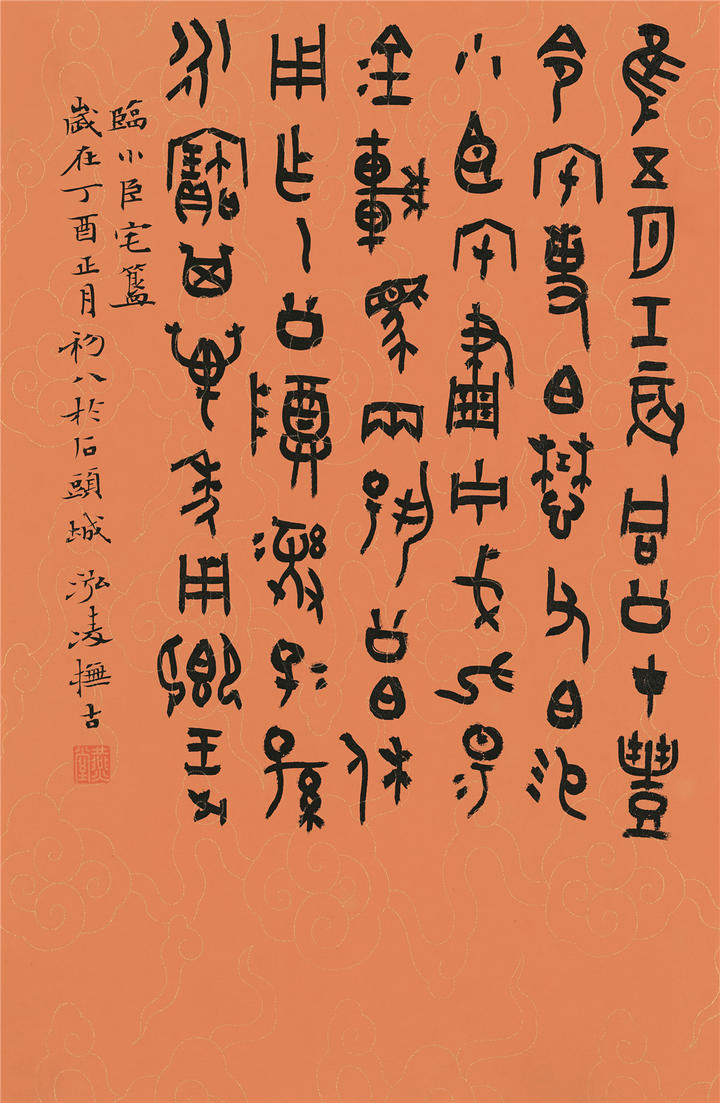 隹五月壬辰同公才豐
令宅事白懋父白易
小臣宅畫毌戈九昜
金車馬兩揚公白休
用乍乙公尊彝子=孫
永寶其萬年用鄉王
臨小臣宅簋
歲在丁酉正月初八於石頭城 泓凌撫古